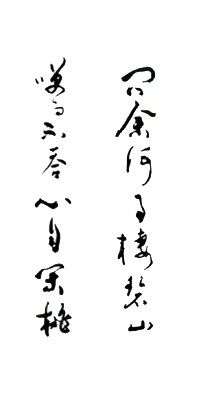 問余何事棲碧山
咲而不答心自閑桃